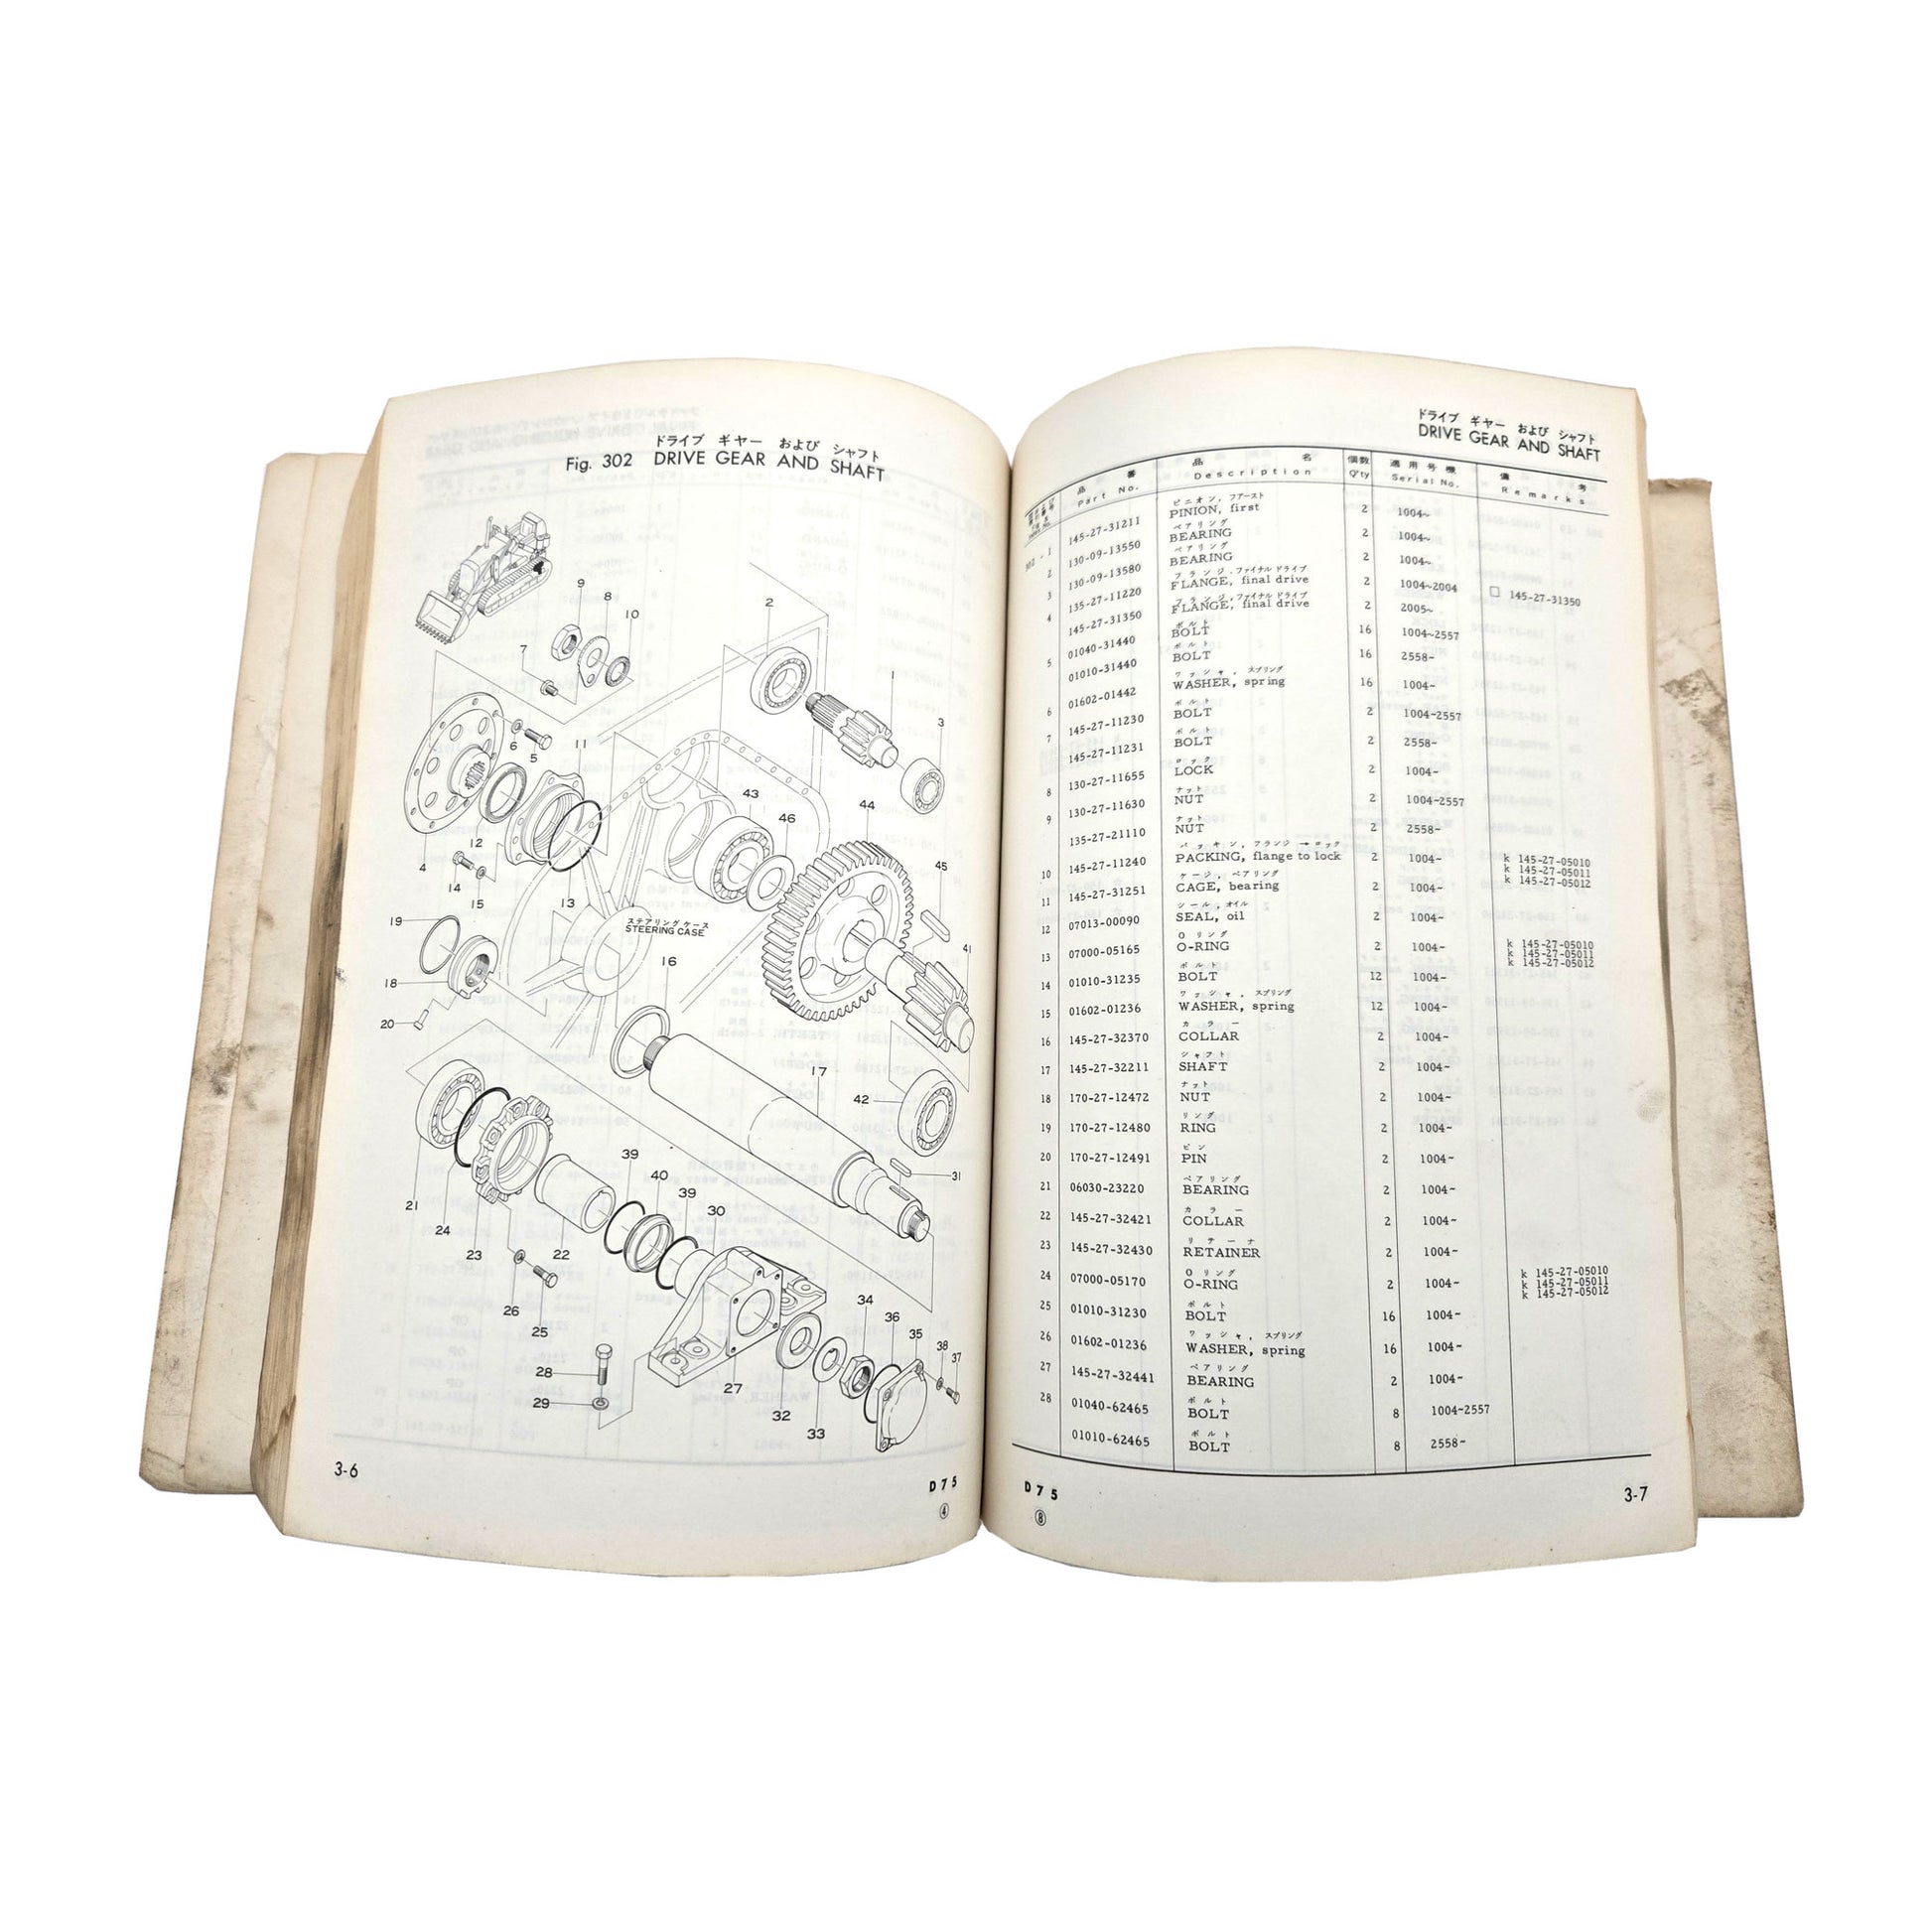 ドライブ ギヤー および シャフト
Fig. 302 DRIVE GEAR AND SHAFT
9
8
10
7
2
1
3
6
5
11
4
12
14
15
13
43
46
44
45
41
ステアリングケース
STEERING CASE
19
18
20
16
17
42
31
21
24
23
22
39
40
39
30
26
25
28
29
27
32
33
34
36
35
38
37
3-6
D75
④
ドライブ ギヤー および シャフト
DRIVE GEAR AND SHAFT
品 番 品 名 個数 適用号機 備 考
Part No. Description Q'ty Serial No. Remarks
ピニオン, ファースト
302-1 145-27-31211 PINION, first 2 1004~
ベアリング
2 130-09-13550 BEARING 2 1004~
ベアリング
3 130-09-13580 BEARING 2 1004~
フランジ, ファイナルドライブ
4 135-27-11220 FLANGE, final drive 2 1004~2004 □ 145-27-31350
フランジ, ファイナルドライブ
145-27-31350 FLANGE, final drive 2 2005~
ボルト
5 01040-31440 BOLT 16 1004~2557
ボルト
01010-31440 BOLT 16 2558-
ワッシャ, スプリング
6 01602-01442 WASHER, spring 16 1004-
ボルト
7 145-27-11230 BOLT 2 1004-2557
ボルト
145-27-11231 BOLT 2 2558-
ロック
8 130-27-11655 LOCK 2 1004-
ナット
9 130-27-11630 NUT 2 1004-2557
ナット
135-27-21110 NUT 2 2558-
パッキン, フランジ → ロック
10 145-27-11240 PACKING, flange to lock 2 1004- k 145-27-05010
k 145-27-05011
k 145-27-05012
ケージ, ベアリング
11 145-27-31251 CAGE, bearing 2 1004-
シール, オイル
12 07013-00090 SEAL, oil 2 1004-
O リング
13 07000-05165 O-RING 2 1004- k 145-27-05010
k 145-27-05011
k 145-27-05012
ボルト
14 01010-31235 BOLT 12 1004-
ワッシャ, スプリング
15 01602-01236 WASHER, spring 12 1004-
カラー
16 145-27-32370 COLLAR 2 1004-
シャフト
17 145-27-32211 SHAFT 2 1004-
ナット
18 170-27-12472 NUT 2 1004-
リング
19 170-27-12480 RING 2 1004-
ピン
20 170-27-12491 PIN 2 1004-
ベアリング
21 06030-23220 BEARING 2 1004-
カラー
22 145-27-32421 COLLAR 2 1004-
リテーナ
23 145-27-32430 RETAINER 2 1004-
O リング
24 07000-05170 O-RING 2 1004- k 145-27-05010
k 145-27-05011
k 145-27-05012
ボルト
25 01010-31230 BOLT 16 1004-
ワッシャ, スプリング
26 01602-01236 WASHER, spring 16 1004-
ベアリング
27 145-27-32441 BEARING 2 1004-
ボルト
28 01040-62465 BOLT 8 1004~2557
ボルト
01010-62465 BOLT 8 2558-
D75
⑧
3-7